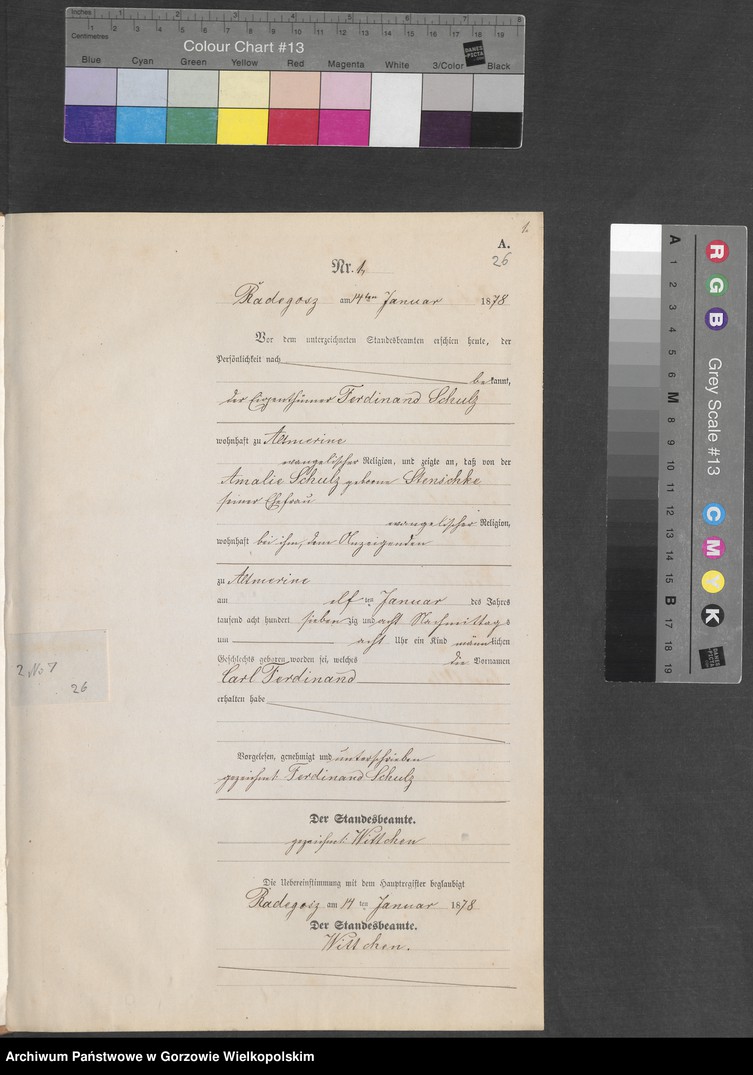 Inches 1 2 3 4 5 6 7 8
Centimetres 1 2 3 4 5 6 7 8 9 10 11 12 13 14 15 16 17 18 19
Colour Chart #13
DANES PICTA
Blue Cyan Green Yellow Red Magenta White 3/Color Black
1.
A.
26
Nr. 1.
Radegosz am 14ten Januar 1878
Vor dem unterzeichneten Standesbeamten erschien heute, der
Persönlichkeit nach
bekannt,
der Eigenthümer Ferdinand Schulz
wohnhaft zu Altmerine
evangelischer Religion, und zeigte an, daß von der
Amalie Schulz geborne Stenschke
seiner Ehefrau
evangelischer Religion,
wohnhaft bei ihm, dem Anzeigenden
zu Altmerine
am elf ten Januar des Jahres
tausend acht hundert siebenzig und acht Nachmittags
um acht Uhr ein Kind männlichen
Geschlechts geboren worden sei, welches die Vornamen
Carl Ferdinand
erhalten habe
Vorgelesen, genehmigt und unterschrieben
gezeichnet: Ferdinand Schulz
Der Standesbeamte.
gezeichnet: Wittchen
Die Uebereinstimmung mit dem Hauptregister beglaubigt
Radegosz am 14 ten Januar 1878
Der Standesbeamte.
Wittchen.
2 No 7
26
R G B C M Y K
Grey Scale #13
A 1 2 3 4 5 6 M 8 9 10 11 12 13 14 15 B 17 18 19
DANES PICTA
Archiwum Państwowe w Gorzowie Wielkopolskim